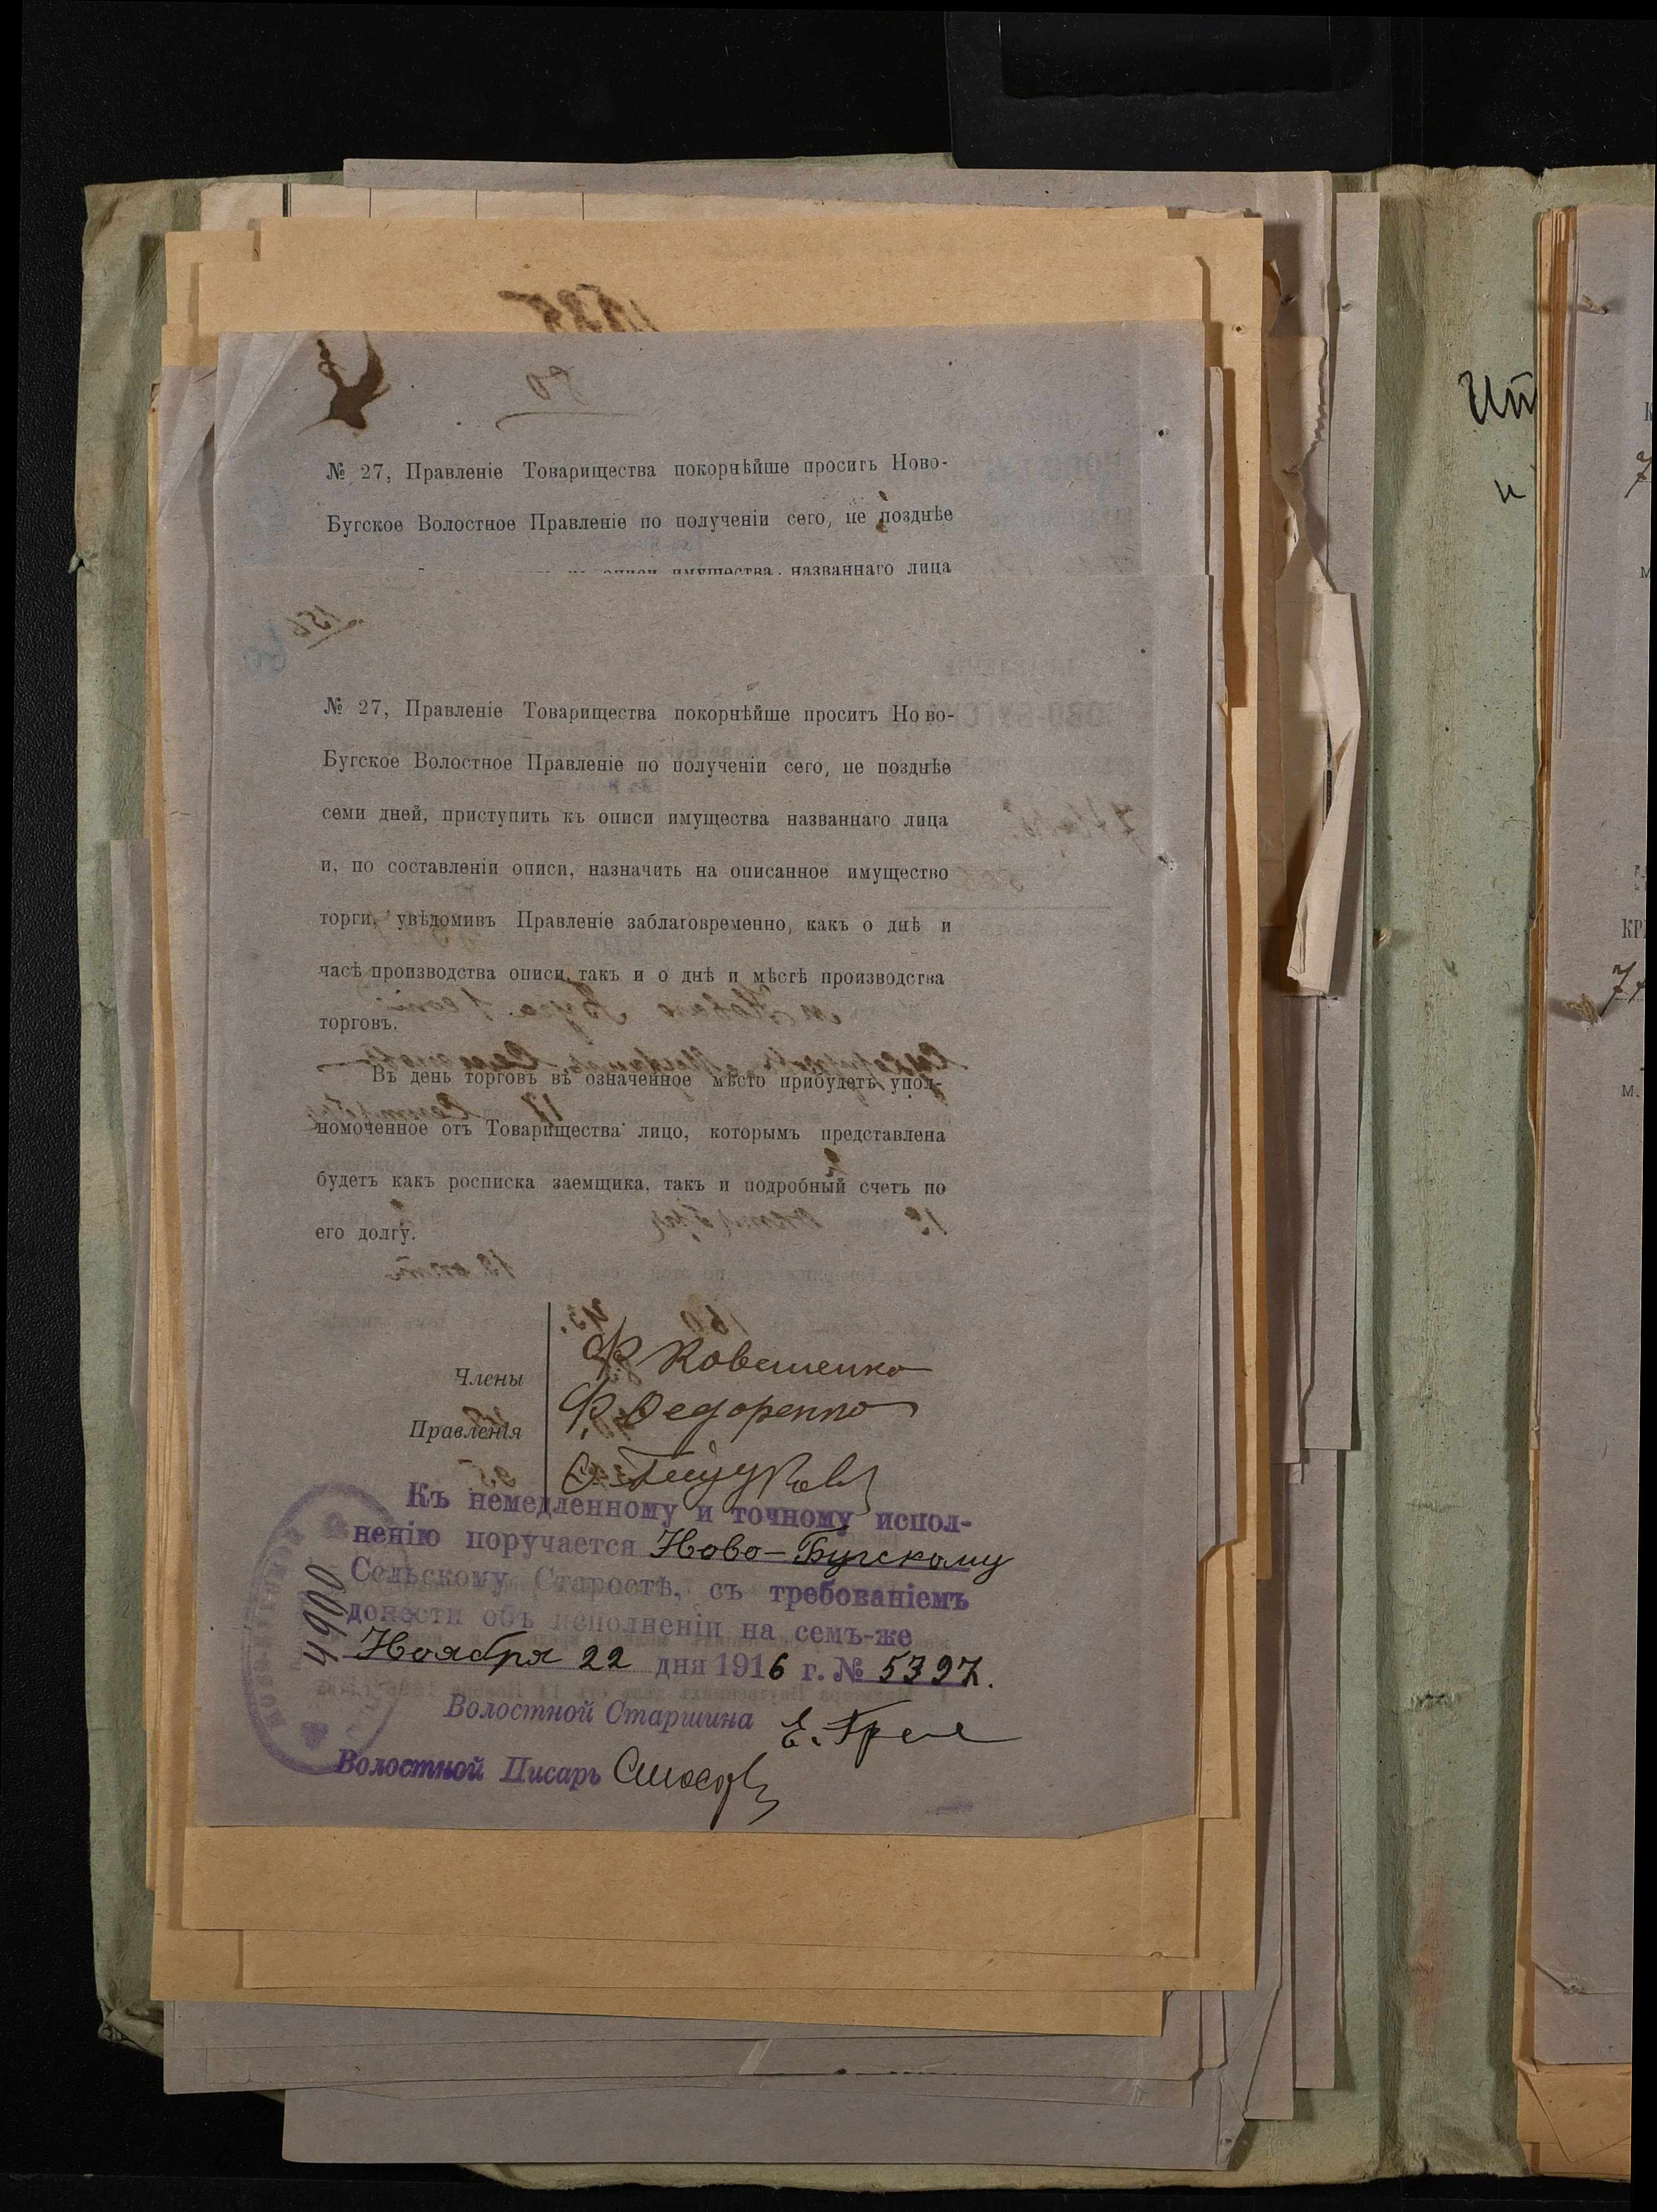 № 27, Правленіе Товарищества покорнѣйше проситъ Ново-
Бугское Волостное Правленіе по полученіи сего, не позднѣе
описи имущества, названнаго лица
№ 27, Правленіе Товарищества покорнѣйше проситъ Ново-
Бугское Волостное Правленіе по полученіи сего, не позднѣе
семи дней, приступить къ описи имущества названнаго лица
и, по составленіи описи, назначить на описанное имущество
торги, увѣдомивъ Правленіе заблаговременно, какъ о днѣ и
часѣ производства описи, такъ и о днѣ и мѣстѣ производства
торговъ.
Въ день торговъ въ означенное мѣсто прибудетъ упол-
номоченное отъ Товарищества лицо, которымъ представлена
будетъ какъ росписка заемщика, такъ и подробный счетъ по
его долгу.
Члены
Правленія
Ф. Федоренко
Къ немедленному и точному испол-
ненію поручается Ново-Бугскому
Сельскому Старостѣ, съ требованіемъ
донести объ исполненіи на семъ-же
Ноября 22 дня 1916 г. № 5397.
4900
Волостной Старшина
Волостной Писарь